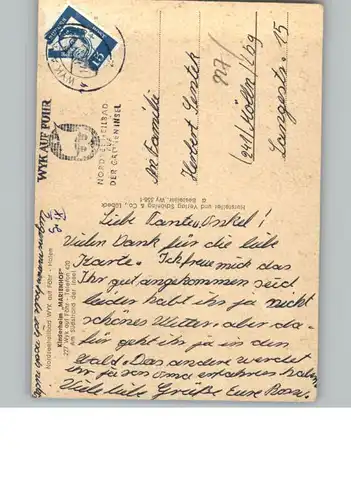 WYK AUF FÖHR
NORDSEEHEILBAD
DER GRÜNEN INSEL
An Familie
Herbert
(241) Mölln / Lbg
Langestr. 15
Hersteller und Verlag Schöning & Co., Lübeck
Bestellnr. Wy 556
Nordseeheilbad WYK auf Föhr - Hafen
Kinderheim „MARIENHOF“
227 Wyk auf Föhr - Telefon 420
Am Südstrand der Insel
Liebe Tante u. Onkel!
Vielen Dank für die liebe
Karte. Ich freue mich das
Ihr gut angekommen seid
leider habt ihr ja nicht
schönes Wetter. aber da-
für geht ihr ja in den
Wald. Das andere werdet
ihr ja von Oma erfahren haben
Viele liebe Grüße Eure